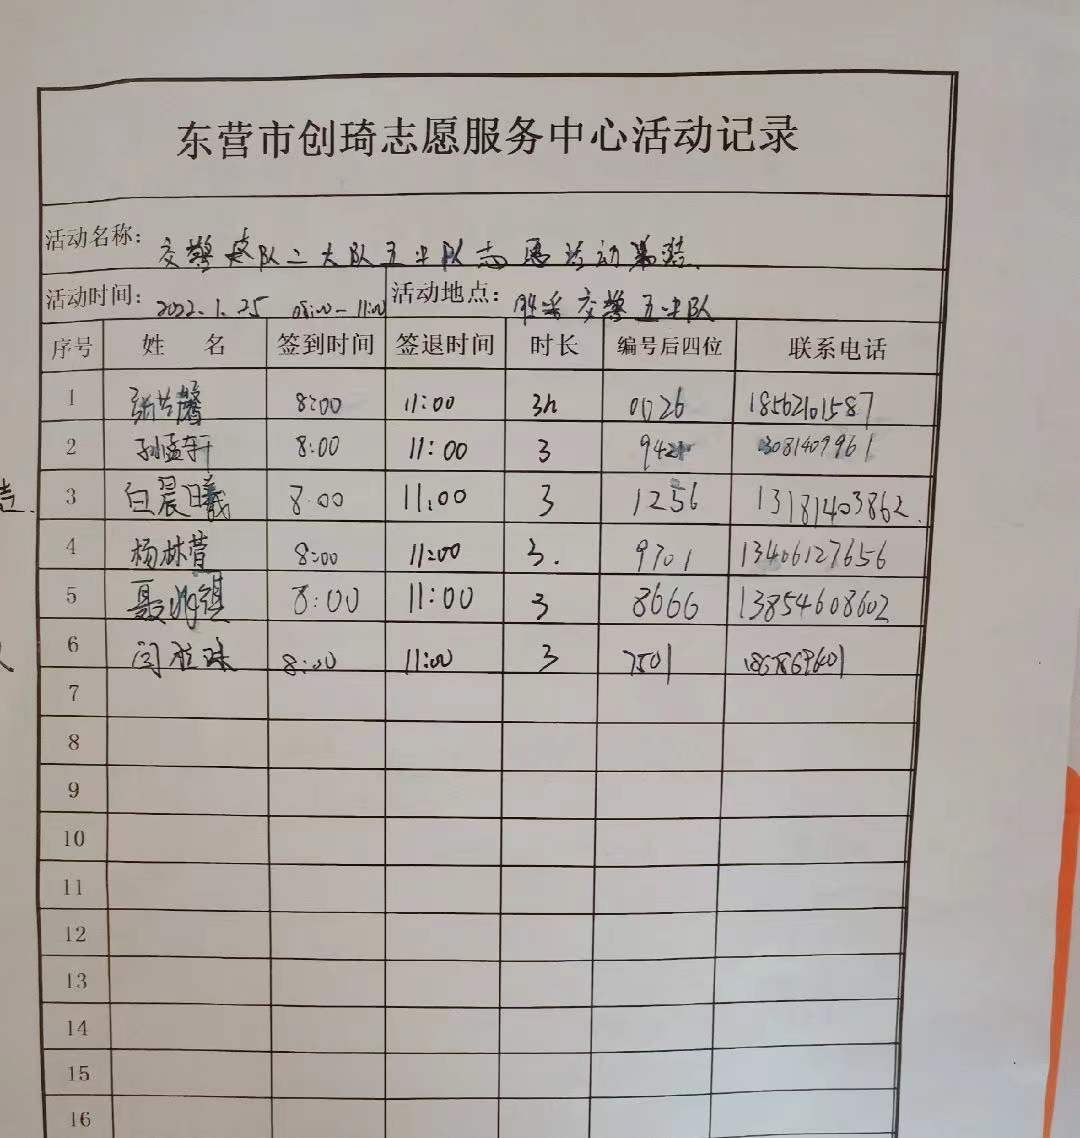 东营市创琦志愿服务中心活动记录
活动名称: 交警支队二大队五中队志愿活动
活动时间: 2022.1.25 08:00-11:00 活动地点: 胜采交警五中队
序号 姓名 签到时间 签退时间 时长 编号后四位 联系电话
1 张馨 8:00 11:00 3h 0026 18562101587
2 孙孟轩 8:00 11:00 3 942 3081409961
3 白晨曦 8:00 11:00 3 1256 13181403862.
4 杨林萱 8:00 11:00 3. 9701 13406127656
5 聂祺 8:00 11:00 3 8666 13854608602
6 闫 8:00 11:00 3 7501
7
8
9
10
11
12
13
14
15
16